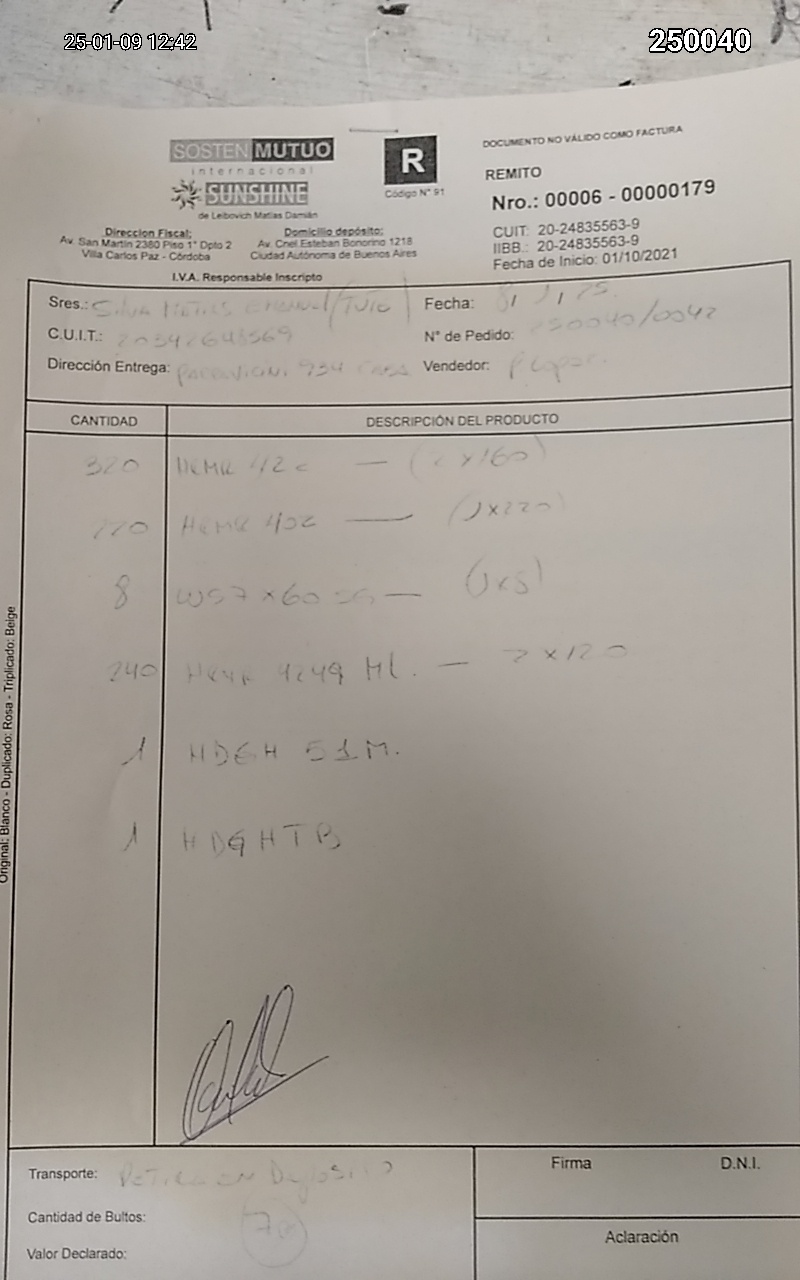 25-01-09 12:42
250040
SOSTEN MUTUO
internacional
SUNSHINE
de Leibovich Matías Damián
R
Código N° 91
DOCUMENTO NO VÁLIDO COMO FACTURA
REMITO
Nro.: 00006 - 00000179
CUIT: 20-24835563-9
IIBB.: 20-24835563-9
Fecha de Inicio: 01/10/2021
Direccion Fiscal:
Av. San Martín 2380 Piso 1° Dpto 2
Villa Carlos Paz - Córdoba
Domicilio depósito:
Av. Cnel Esteban Bonorino 1218
Ciudad Autónoma de Buenos Aires
I.V.A. Responsable Inscripto
Sres.: Silva
Fecha: 8/1/25
C.U.I.T.: 20342648569
N° de Pedido: 250040/0042
Dirección Entrega: 934 CABA
Vendedor:
CANTIDAD DESCRIPCIÓN DEL PRODUCTO
320 — (2x160)
220 — (1x220)
8 WS7x60 — (1x8)
240 4249 Hl. — 2x120
1 HDGH 51M.
1 HDGHTB
Original: Blanco - Duplicado: Rosa - Triplicado: Beige
Transporte: Retira en Deposito
Cantidad de Bultos: 7
Valor Declarado:
Firma D.N.I.
Aclaración